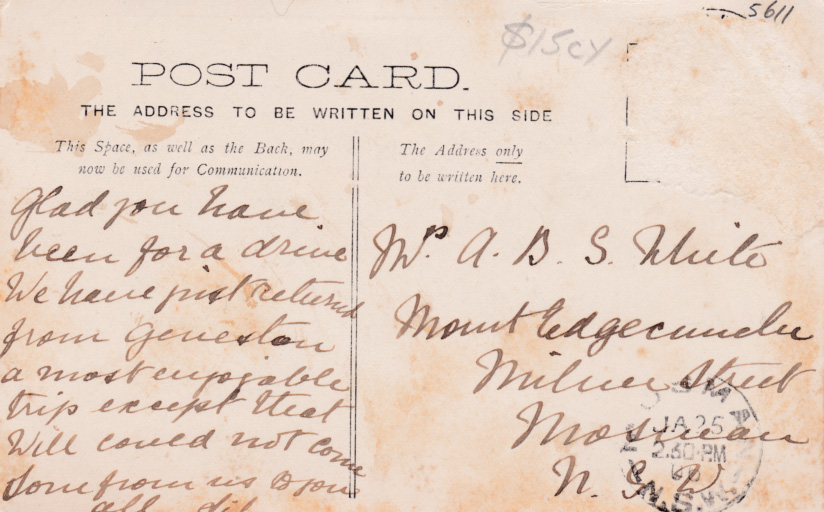 5611
$15cy
POST CARD.
THE ADDRESS TO BE WRITTEN ON THIS SIDE
This Space, as well as the Back, may
now be used for Communication.
The Address only
to be written here.
Glad you have
been for a drive
We have just returned
from
a most enjoyable
trip except that
Will could not come
from us to you
all
A. B. S. White
Mount Edgecumbe
Milner Street
Mosman
N. S. W
JA 25
2.30 PM
N.S.W.